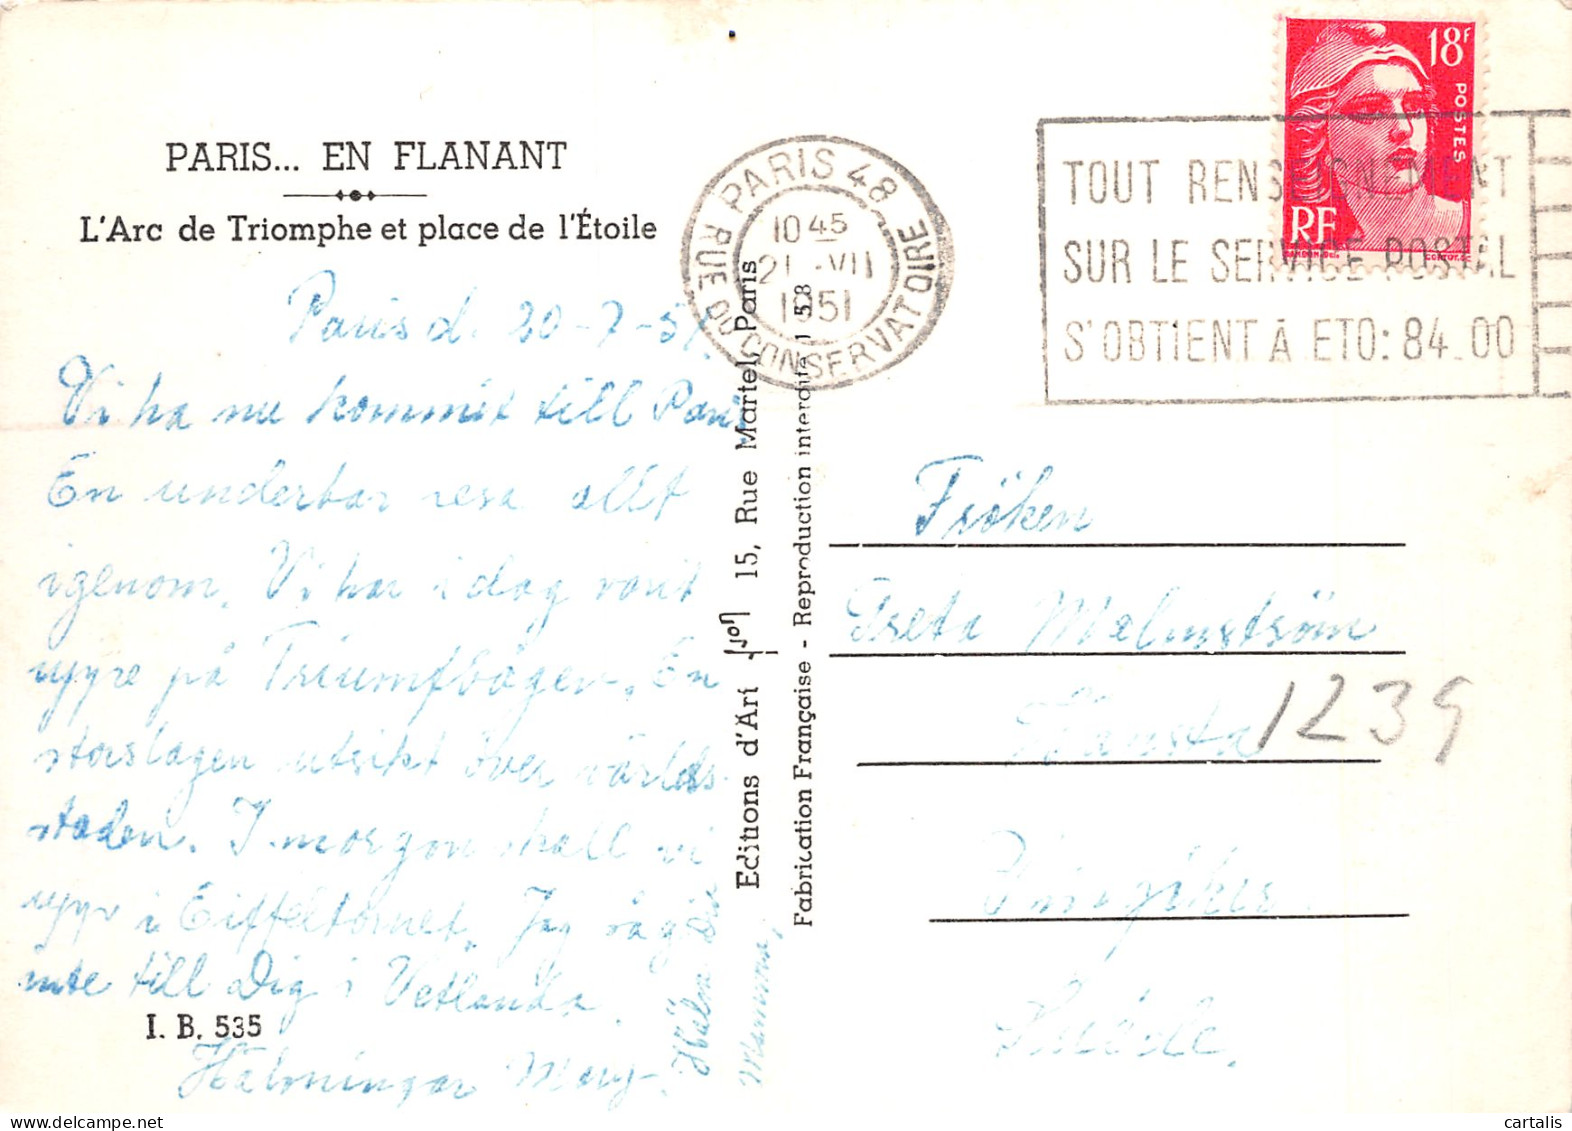 PARIS... EN FLANANT
L'Arc de Triomphe et place de l'Étoile
Paris d. 20-7-51.
Vi ha nu kommit till Paris
En underbar resa allt
igenom. Vi har i dag varit
uppe på Triumfbågen. En
storslagen utsikt över världs-
staden. I morgon skall vi
upp i Eiffeltornet. Jag såg
inte till Dig i Vetlanda.
I. B. 535
Hälsningar Mary.
Hälsa
Mamma,
Editions d'Art
15, Rue Martel, Paris
Fabrication Française - Reproduction interdite
PARIS 48
RUE DU CONSERVATOIRE
10 45
21 -VII
1951
TOUT RENSEIGNEMENT
SUR LE SERVICE POSTAL
S'OBTIENT À ETO: 84_00
18F
POSTES
RF
GANDON
Fröken
Greta Malmström
1239
Suède.
cartalis